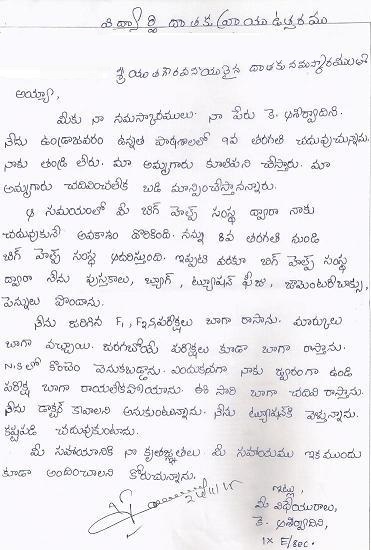 విద్యార్థి దాతకు వ్రాయు ఉత్తరము
శ్రీయుత గౌరవనీయులైన దాతకు నమస్కారములతో
అయ్యా,
మీకు నా నమస్కారములు. నా పేరు కె. ఆశీర్వాదిని.
నేను ఉండ్రాజవరం ఉన్నత పాఠశాలలో 9వ తరగతి చదువుచున్నాను.
నాకు తండ్రి లేరు. మా అమ్మగారు కూలిపని చేస్తారు. మా
అమ్మగారు చదివించలేక బడి మాన్పించేస్తానన్నారు.
ఆ సమయంలో మీ బిగ్ హెల్ప్ సంస్థ ద్వారా నాకు
చదువుకునే అవకాశం దొరికింది. నన్ను 8వ తరగతి నుండి
బిగ్ హెల్ప్ సంస్థ ఆదరిస్తుంది. ఇప్పటి వరకూ బిగ్ హెల్ప్ సంస్థ
ద్వారా నేను పుస్తకాలు, బ్యాగ్, ట్యూషన్ ఫీజు, జామెంటరీబాక్సు,
పెన్నులు పొందాను.
నేను జరిగిన F1, F2, S1 పరీక్షలు బాగా రాసాను. మార్కులు
బాగా వచ్చాయి. జరగబోయే పరీక్షలు కూడా బాగా రాస్తాను.
N.S లో కొంచెం వెనుకబడ్డాను. ఎందుకనగా నాకు జ్వరంగా ఉండి
పరీక్ష బాగా రాయలేకపోయాను. ఈ సారి బాగా చదివి రాస్తాను.
నేను డాక్టర్ కావాలని అనుకుంటున్నాను. నేను ట్యూషన్‌కి వెళ్తున్నాను.
కష్టపడి చదువుకుంటాను.
మీ సహాయానికి నా కృతజ్ఞతలు. మీ సహాయము ఇక ముందు
కూడా అందించాలని కోరుచున్నాను.
ఇట్లు,
మీ విధేయురాలు,
కె. ఆశీర్వాదిని,
IX E/sec.